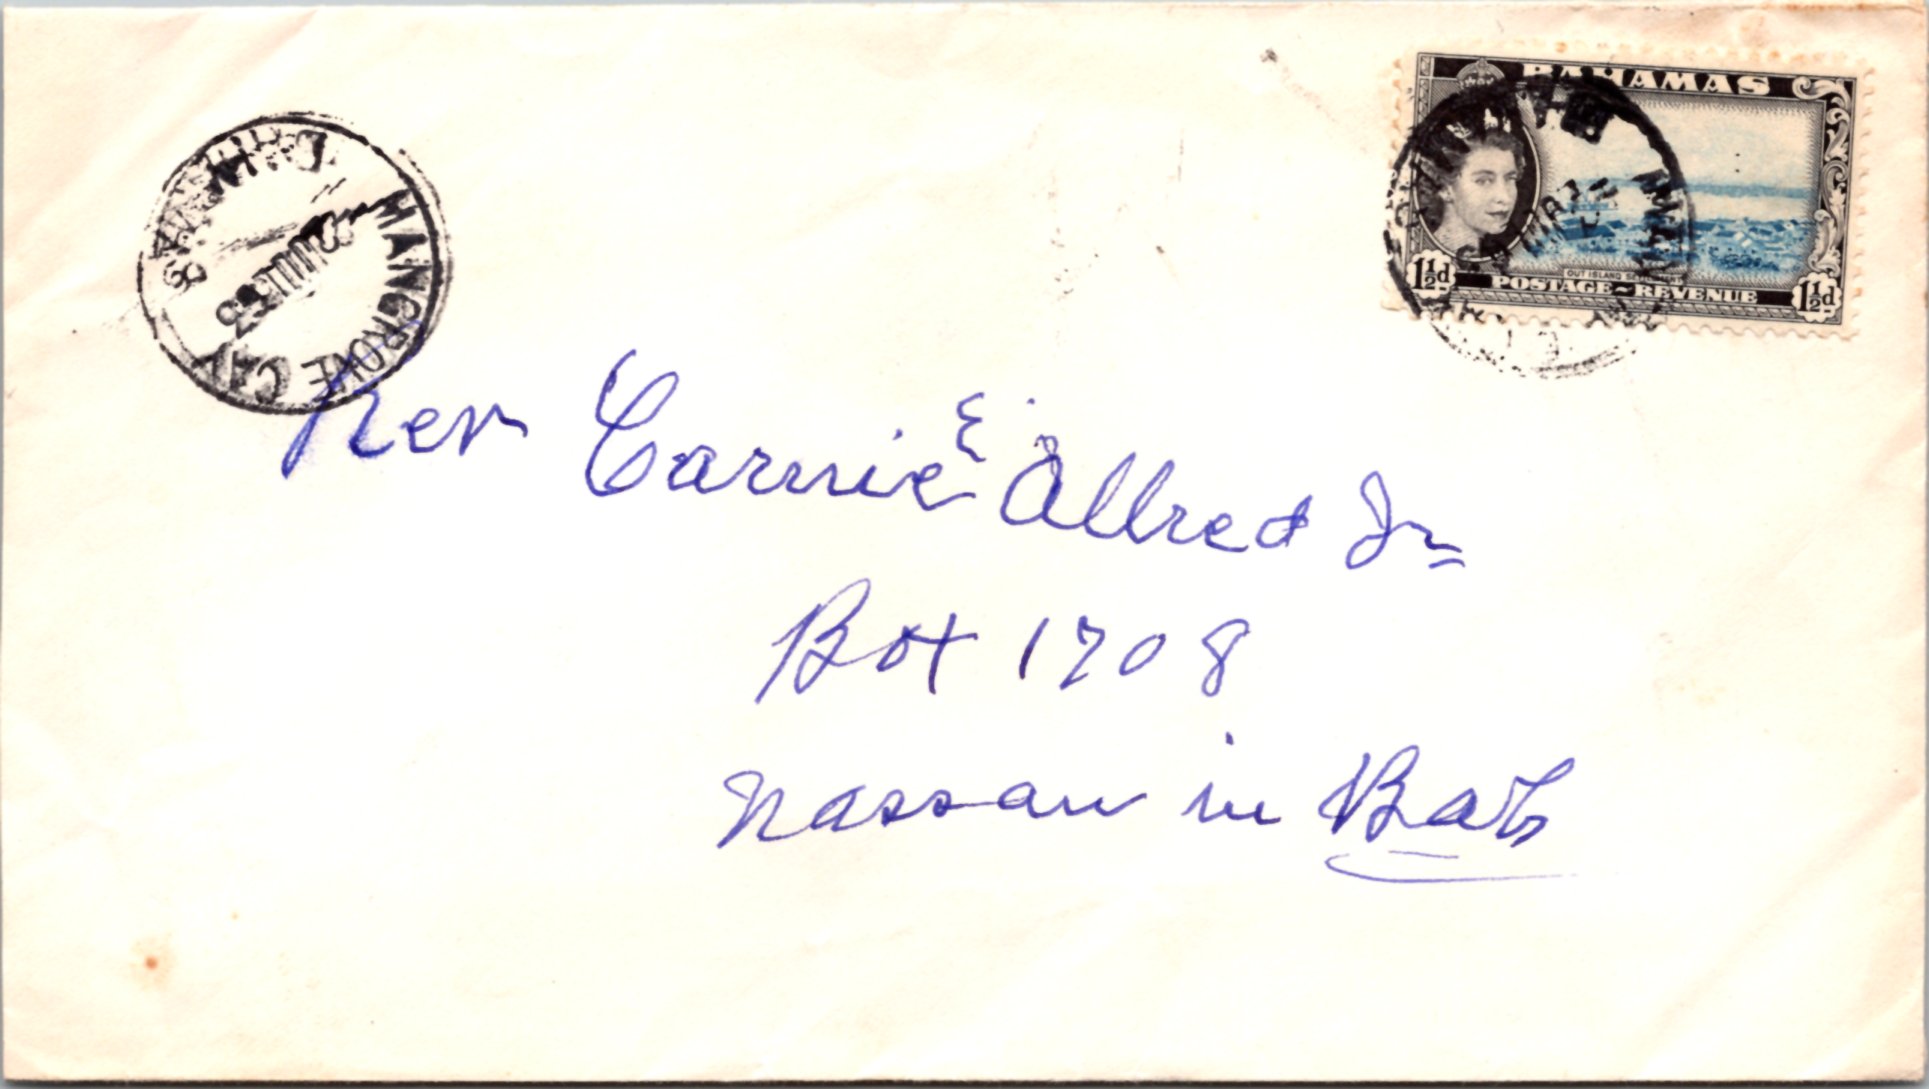 BAHAMAS
1½d
OUT ISLAND
POSTAGE~REVENUE
1½d
MANGROVE CAY
BAHAMAS
Rev Carrie E. Allred Jr
Box 1708
Nassau in Bah